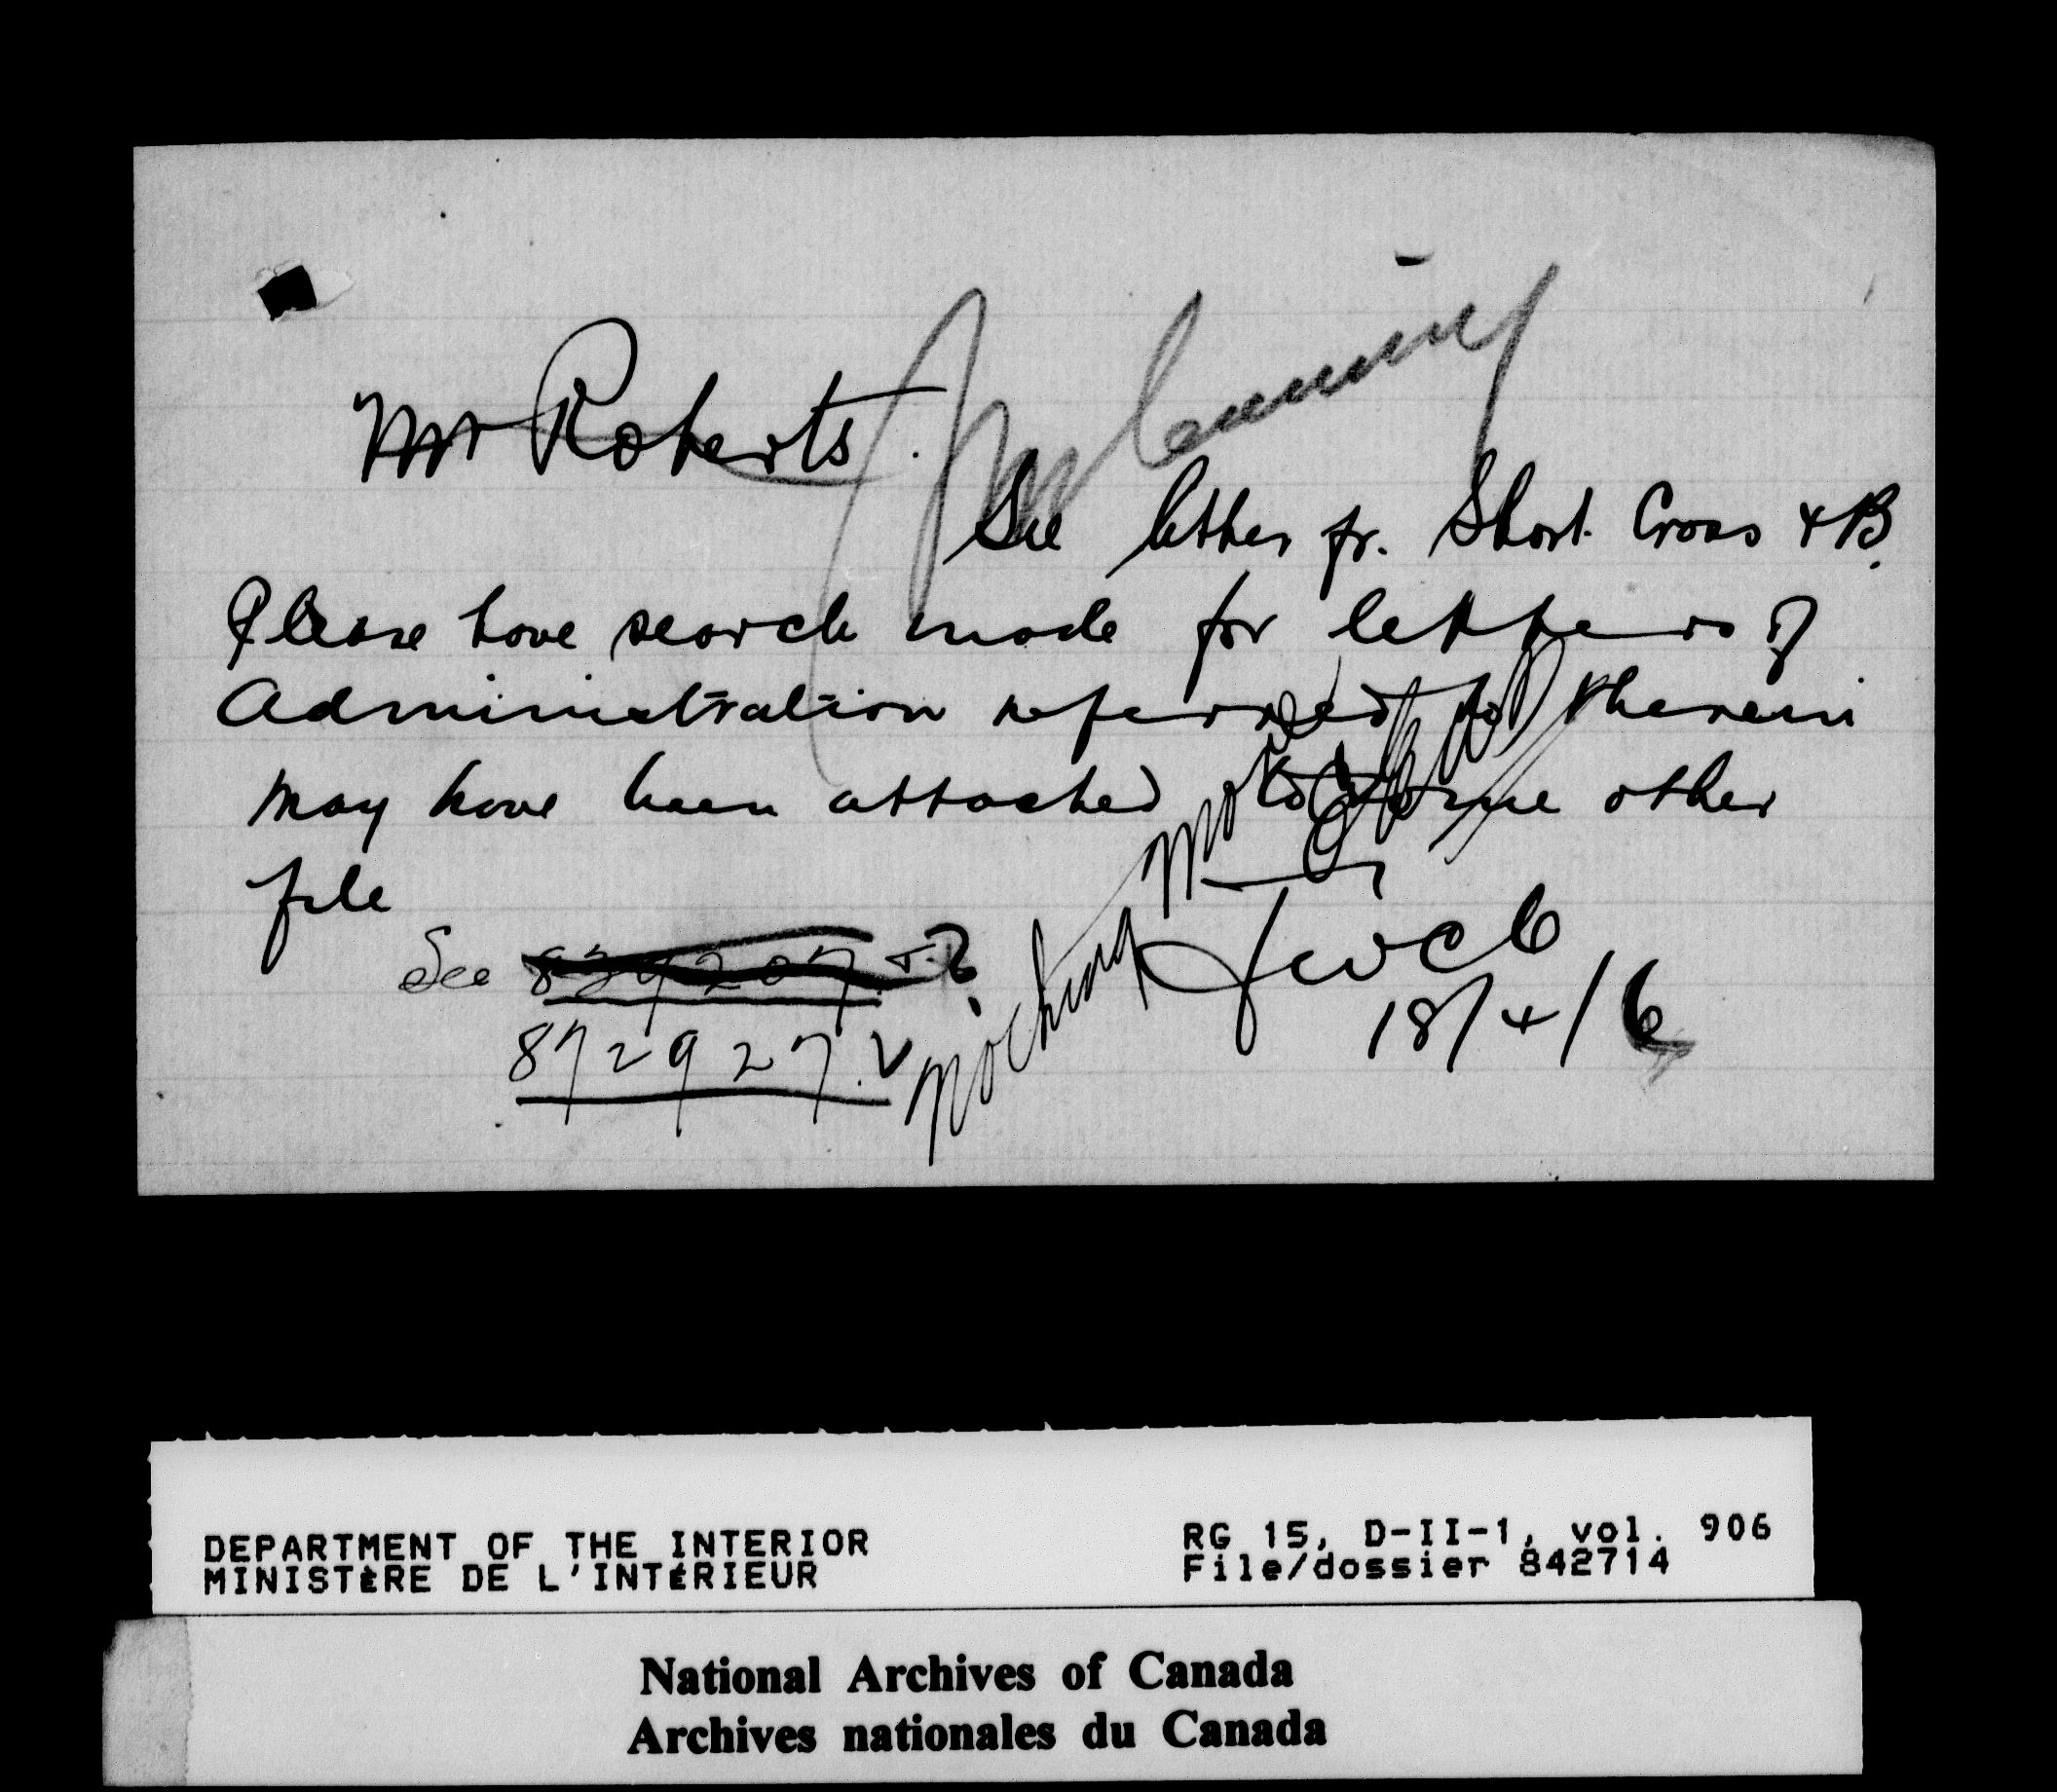 Mr Roberts.
See letter fr. Short Cross & B.
Please have search made for letters of
Administration referred to therein
may have been attached to some other
file
See 
872927.
Nothing more
JWCB
18/4/6
DEPARTMENT OF THE INTERIOR
MINISTÈRE DE L'INTÉRIEUR
RG 15, D-II-1, vol. 906
File/dossier 842714
National Archives of Canada
Archives nationales du Canada